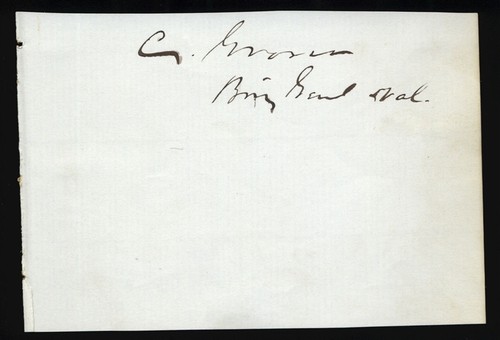 C. Grover
Brig Genl Vol.